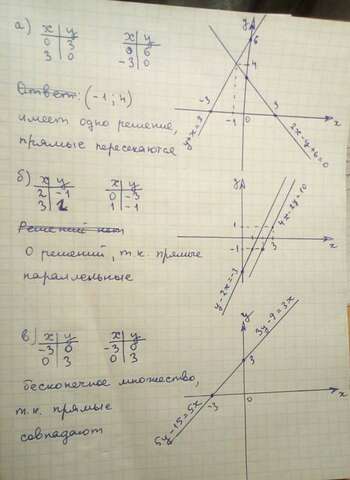 а) x | y    x | y
0 | 3    0 | 6
3 | 0    -3 | 0
Ответ: (-1; 4)
имеет одно решение,
прямые пересекаются
y
6
4
-3
-1
0
3
x
y+x=3
2x-y+6=0
б) x | y    x | y
2 | -1    0 | -3
3 | 1    1 | -1
Решений нет
0 решений, т.к. прямые
параллельные
y
1
1
3
-1
x
y-2x=-3
4x-2y=10
в) x | y    x | y
-3 | 0    -3 | 0
0 | 3    0 | 3
бесконечное множество,
т.к. прямые
совпадают
y
3
-3
0
x
3y-9=3x
5y-15=5x